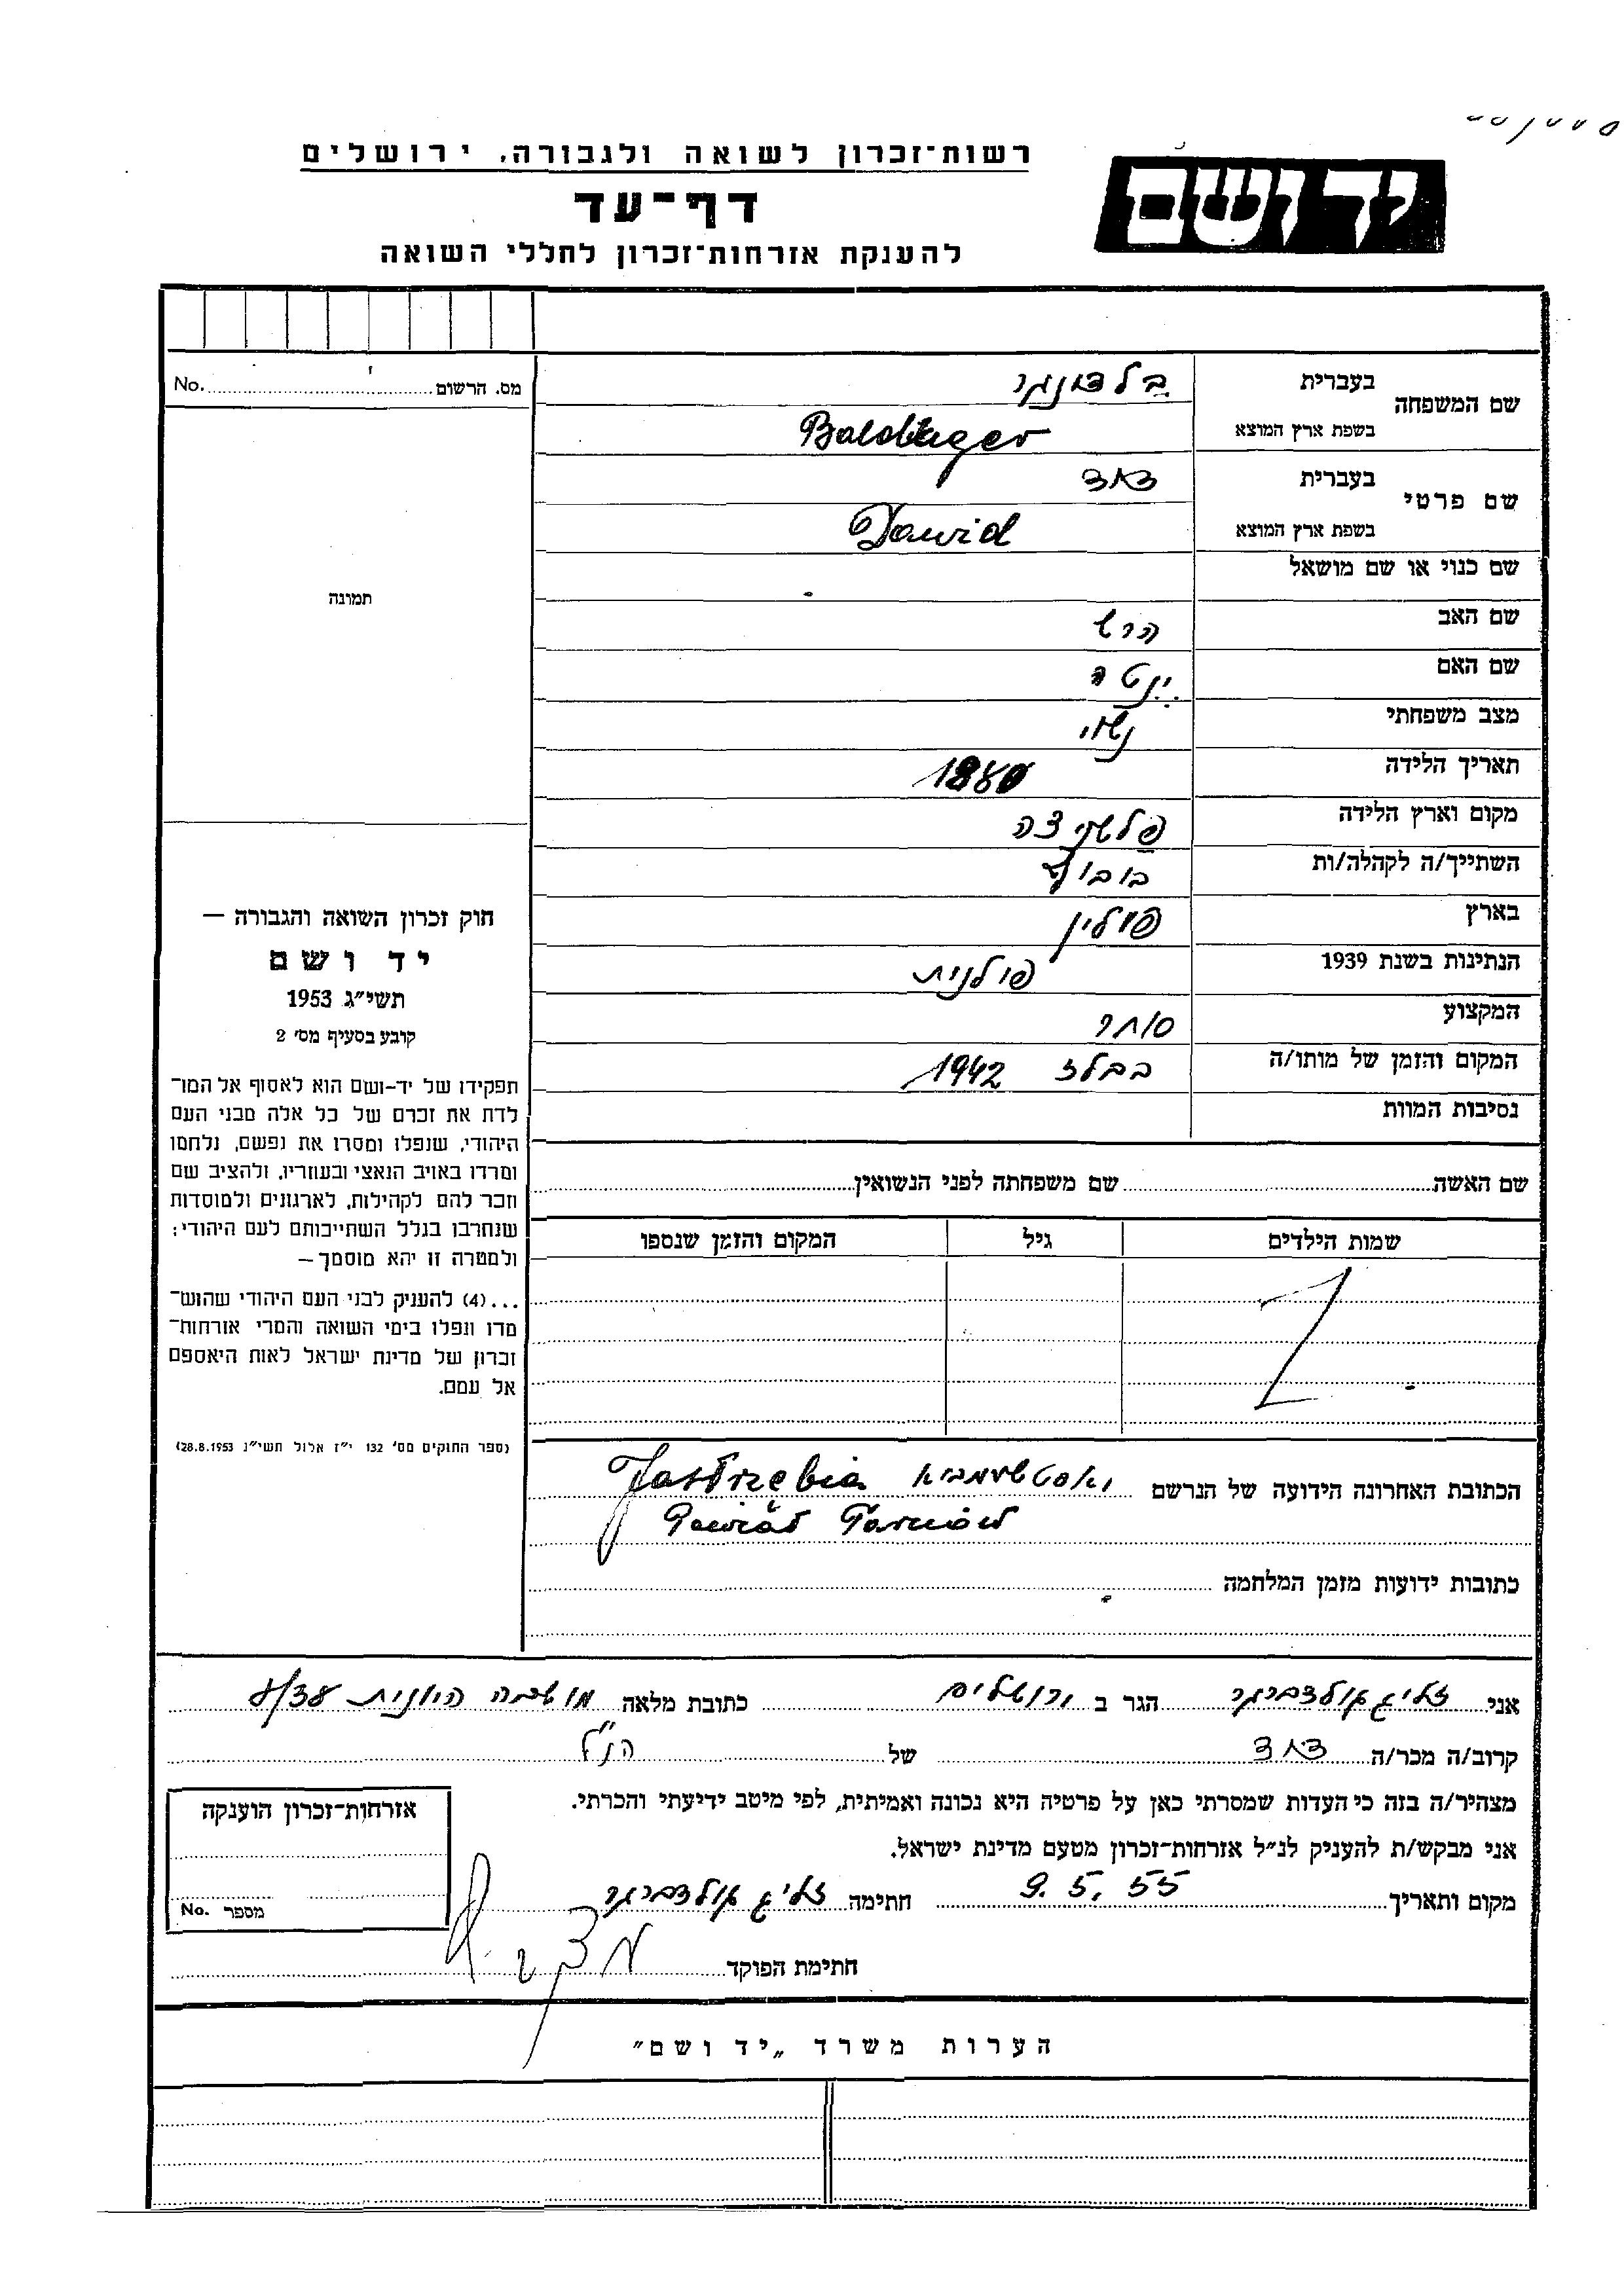 רשות־זכרון לשואה ולגבורה, ירושלים
יד ושם
דף־עד
להענקת אזרחות־זכרון לחללי השואה
מס. הרשום No.
תמונה
שם המשפחה
בעברית
בשפת ארץ המוצא
שם פרטי
בעברית דוד
בשפת ארץ המוצא Dawid
שם כנוי או שם מושאל
שם האב הרש
שם האם ינטה
מצב משפחתי נשוי
תאריך הלידה
מקום וארץ הלידה
השתייך/ה לקהלה/ות
בארץ פולין
הנתינות בשנת 1939 פולנית
המקצוע סוחר
המקום והזמן של מותו/ה בבלז 1942
נסיבות המוות
שם האשה
שם משפחתה לפני הנשואין
שמות הילדים גיל המקום והזמן שנספו
הכתובת האחרונה הידועה של הנרשם Jastrzębia
Powiat Tarnów
כתובות ידועות מזמן המלחמה
חוק זכרון השואה והגבורה —
יד ושם
תשי״ג 1953
קובע בסעיף מס׳ 2
תפקידו של יד-ושם הוא לאסוף אל המו־
לדת את זכרם של כל אלה מבני העם
היהודי, שנפלו ומסרו את נפשם, נלחמו
ומרדו באויב הנאצי ובעוזריו, ולהציב שם
וזכר להם לקהילות, לארגונים ולמוסדות
שנחרבו בגלל השתייכותם לעם היהודי;
ולמטרה זו יהא מוסמך —
...(4) להעניק לבני העם היהודי שהוש־
מדו ונפלו בימי השואה והמרי אזרחות־
זכרון של מדינת ישראל לאות היאספם
אל עמם.
(ספר החוקים מס׳ 132 י״ז אלול תשי״ג 28.8.1953)
אני זליג גולדברגר הגר ב ירושלים כתובת מלאה מושבה היונית
קרוב/ה מכר/ה דוד של הנ״ל
מצהיר/ה בזה כי העדות שמסרתי כאן על פרטיה היא נכונה ואמיתית, לפי מיטב ידיעתי והכרתי.
אני מבקש/ת להעניק לנ״ל אזרחות־זכרון מטעם מדינת ישראל.
מקום ותאריך 9.5.55 חתימה זליג גולדברגר
חתימת הפוקד
אזרחות־זכרון הוענקה
מספר No.
הערות משרד „יד ושם״